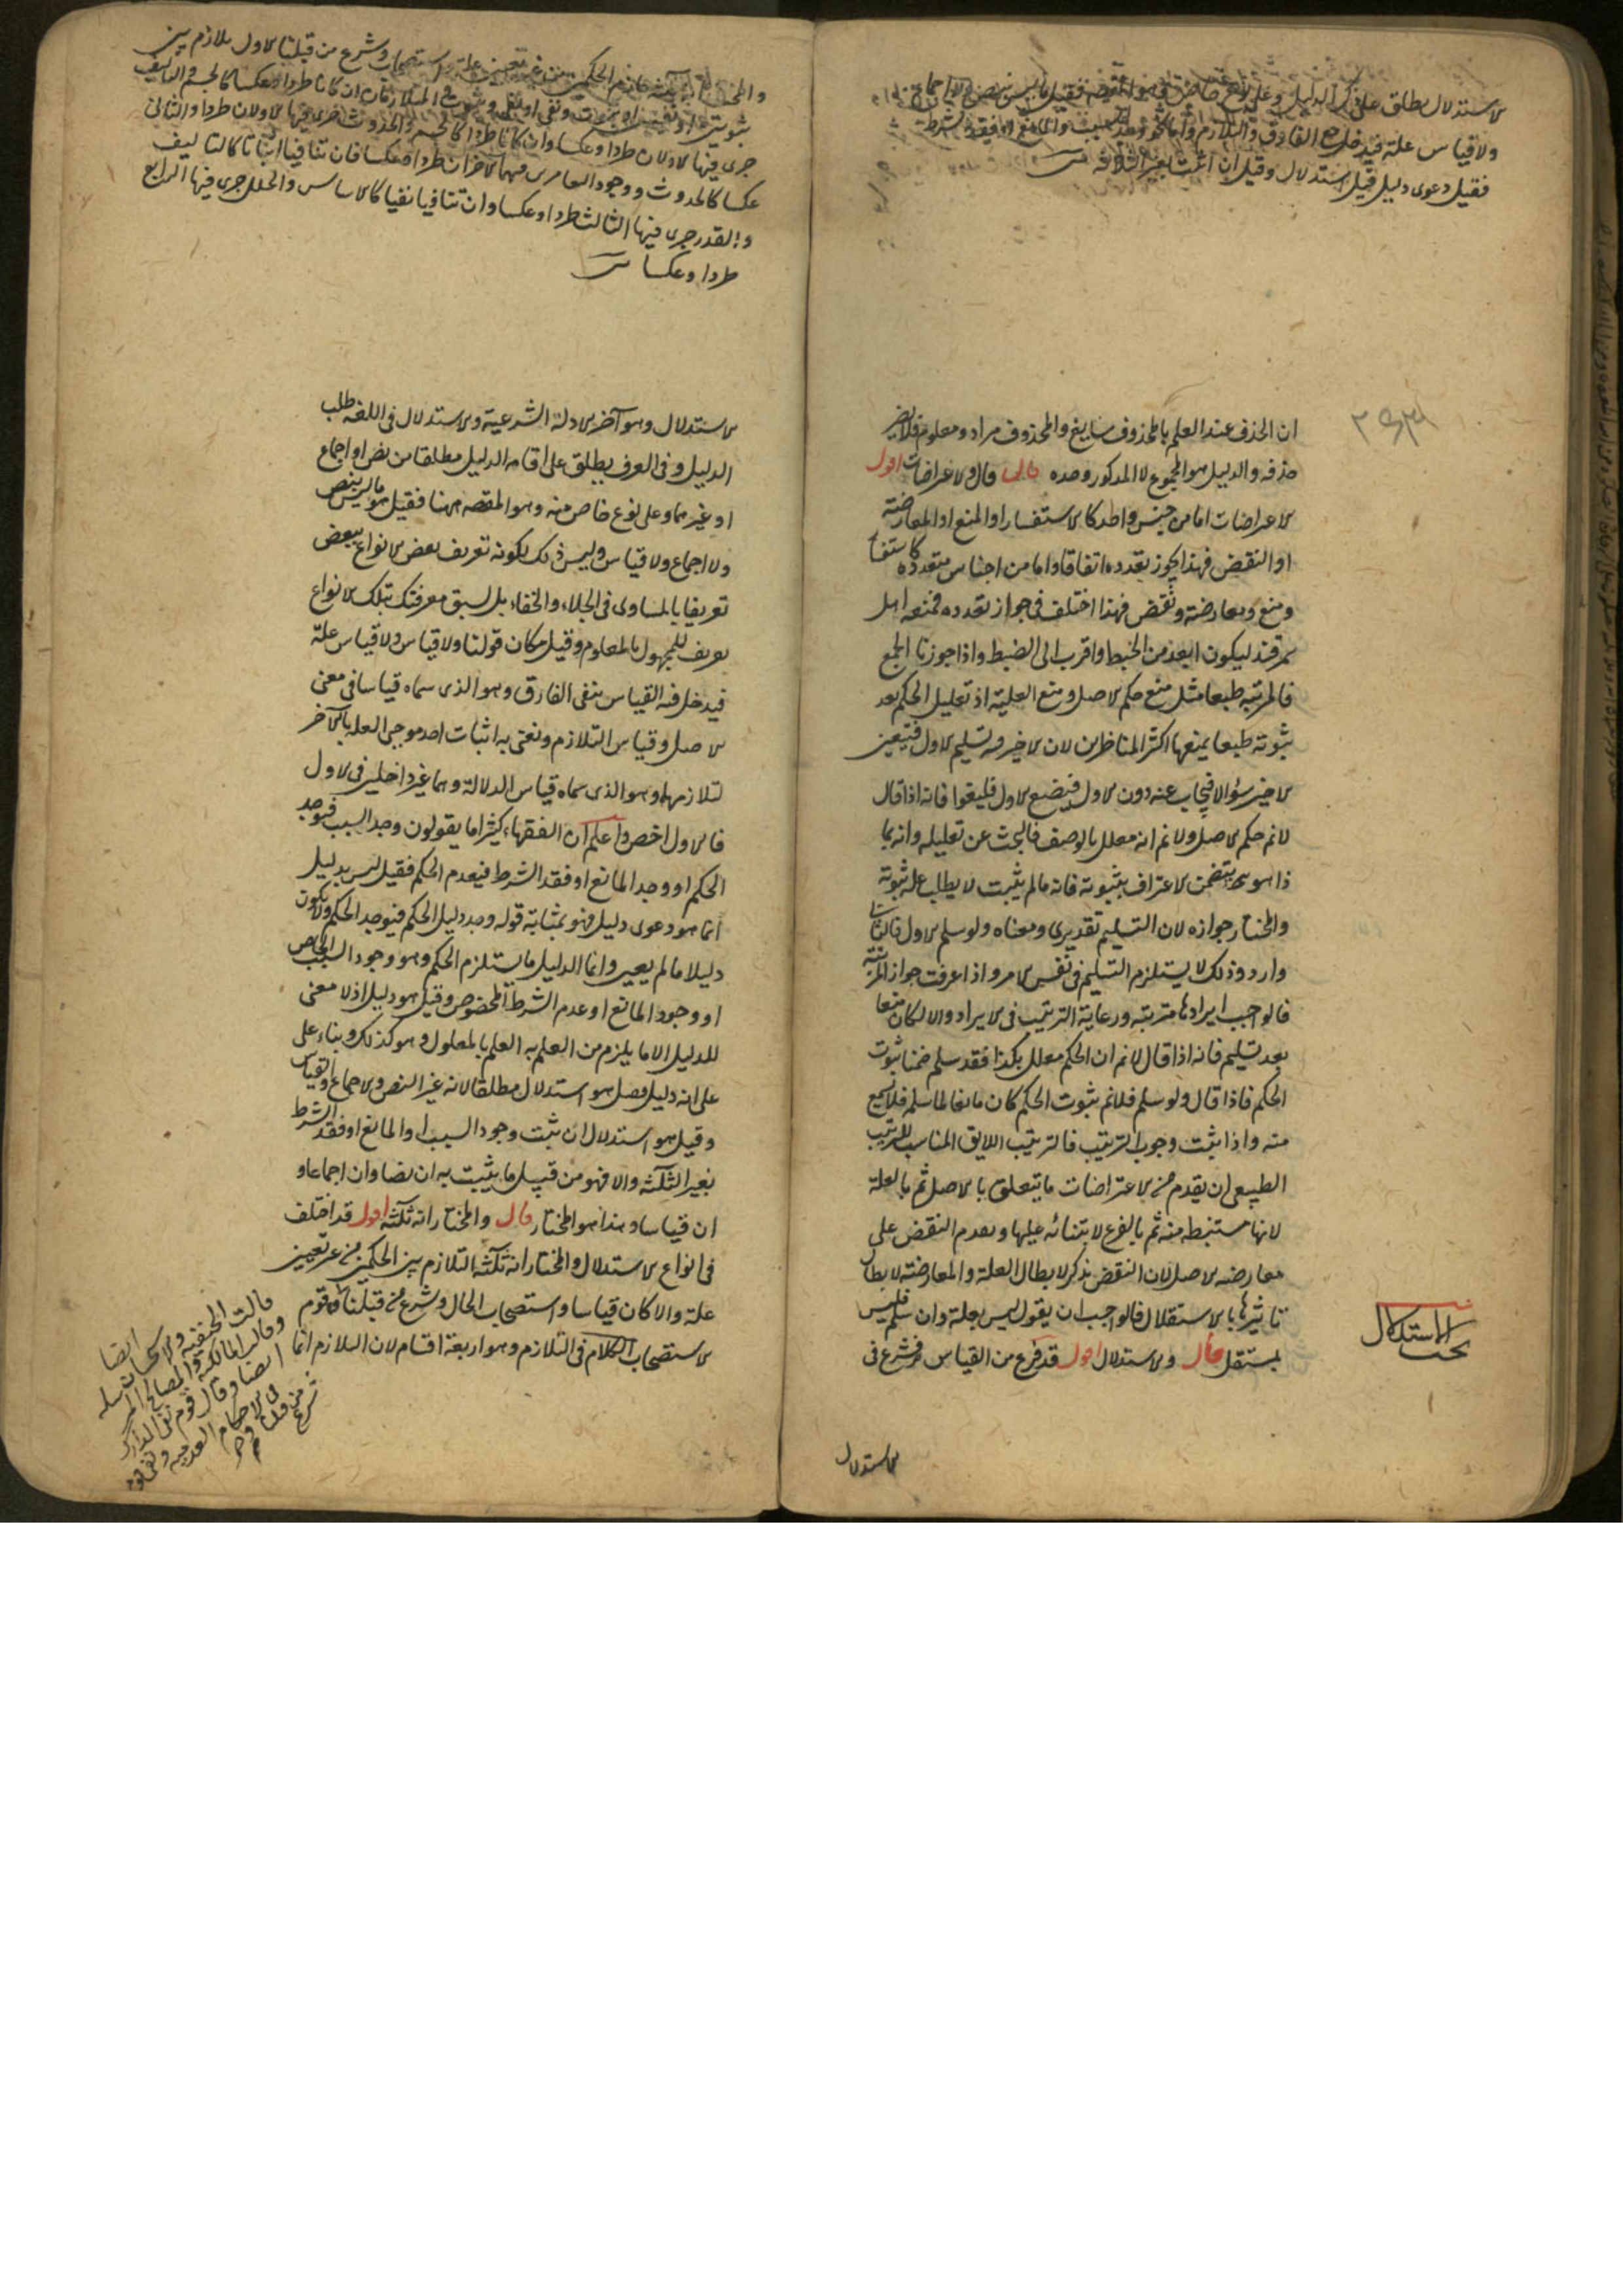 الاستدلال يطلق على ذكر الدليل وعلى نوع خاص منه وهو المقصود فقيل ما ليس بنص ولا اجماع
ولا قياس علة فيدخل نفى الفارق والتلازم واما نحو وجد السبب والمانع او فقد الشرط
فقيل دعوى دليل وقيل استدلال وقيل ان اثبت بغير الثلاثة
ان الحذف عند العلم بالمحذوف سايغ والمحذوف مراد ومعلوم فلا يضر
حذفه والدليل هو المجموع لا المذكور وحده قال والاعتراضات اقول
الاعتراضات اما من جنس واحد كالاستفسار او المنع او المعارضة
او النقض فهذا يجوز تعدده اتفاقا واما من اجناس متعددة كاستفسار
ومنع ومعارضة ونقض فهذا اختلف فى جواز تعدده فمنعه اهل
سمرقند ليكون ابعد من الخبط واقرب الى الضبط واذا جوزنا الجمع
فالمرتبه طبعا مثل منع حكم الاصل ومنع العلية اذ تعليل الحكم بعد
ثبوته طبعا يمنعها اكثر المناظرين لان الاخير فيه تسليم الاول فيتعين
الاخير سؤالا فيجاب عنه دون الاول فيضيع الاول فليغوا فانه اذا قال
لا نم حكم الاصل ولا نم انه معلل بالوصف فالبحث عن تعليله وانه بما
ذا هو يتضمن الاعتراف بثبوته فانه ما لم يثبت لا يطلب علة ثبوته
والمختار جوازه لان التسليم تقديرى ومعناه ولو سلم الاول فالثانى
وارد وذلك لا يستلزم التسليم فى نفس الامر واذا عرفت جواز المرتبة
فالواجب ايرادها مترتبه ورعاية الترتيب فى الايراد والا لكان منعا
بعد تسليم فانه اذا قال لا نم ان الحكم معلل بكذا فقد سلم ضمنا ثبوت
الحكم فاذا قال ولو سلم فلا نم ثبوت الحكم كان مانعا لما سلم فلا يسمع
منه واذا ثبت وجوب الترتيب فالترتيب اللايق المناسب للترتيب
الطبيعى ان يقدم من الاعتراضات ما يتعلق بالاصل ثم بالعلة
لانها مستنبطه منه ثم بالفرع لابتنائه عليها ويقدم النقض على
معارضه الاصل لان النقض يذكر لابطال العلة والمعارضة لابطال
تاثيرها بالاستقلال فالواجب ان يقول ليس بعلة وان سلم فليس
بمستقل قال والاستدلال اقول قد فرغ من القياس فشرع فى
بحث الاستدلال
الاستدلال
شرع من قبلنا الاول تلازم بين
ثبوتين او نفيين او ثبوت ونفى او نفى وثبوت والمتلازمان ان كانا طردا وعكسا كالجسم والتاليف
جرى فيها الاولان طردا وعكسا وان كانا طردا كالجسم والحدوث جرى فيها الاولان طردا والثانى
عكسا كالحدوث ووجوب فيهما الاخران طردا وعكسا فان تنافيا اثباتا كالتاليف
والقدم جرى فيها الثالث طردا وعكسا وان تنافيا نفيا كالاساس والخلل جرى فيها الرابع
طردا وعكسا
الاستدلال وهو آخر الادلة الشرعية والاستدلال فى اللغة طلب
الدليل وفى العرف يطلق على اقامه الدليل مطلقا من نص او اجماع
او غيرهما وعلى نوع خاص منه وهو المقصد ههنا فقيل هو ما ليس بنص
ولا اجماع ولا قياس وليس ذلك لكونه تعريف بعض الانواع ببعض
تعريفا بالمساوى فى الجلاء والخفاء بل لسبق معرفتك بتلك الانواع
تعريف للمجهول بالمعلوم وقيل مكان قولنا ولا قياس ولا قياس علة
فيدخل فيه القياس بنفى الفارق وهو الذى سماه قياسا فى معنى
الاصل وقياس التلازم ونعنى به اثبات احد موجبى العلة بالآخر
لتلازمهما وهو الذى سماه قياس الدلالة وهما غير داخلين فى الاول
فالاول اخص واعلم ان الفقهاء كثيرا ما يقولون وجد السبب فيوجد
الحكم او وجد المانع او فقد الشرط فيعدم الحكم فقيل ليس بدليل
انما هو دعوى دليل فهو بمثابة قوله وجد دليل الحكم فيوجد الحكم ولا يكون
دليلا ما لم يعين وانما الدليل ما يستلزم الحكم وهو وجود السبب الخاص
او وجود المانع او عدم الشرط المخصوص وقيل هو دليل اذ لا معنى
للدليل الا ما يلزم من العلم به العلم بالمعلول وهو كذلك وبناء على
على انه دليل فصل هو استدلال مطلقا لانه غير النص والاجماع والقياس
وقيل هو استدلال ان ثبت وجود السبب او المانع او فقد الشرط
بغير الثلثة والا فهو من قبيل ما يثبت به ان نصا وان اجماعا و
ان قياسا وهذا هو المختار قال والمختار انه ثلثة اقول قد اختلف
فى انواع الاستدلال والمختار انه ثلثة التلازم بين الحكمين من غير تعيين
علة والا كان قياسا واستصحاب الحال وشرع من قبلنا قوم
الاستصحاب الكلام فى التلازم وهو اربعة اقسام لان التلازم انما
قالت الحنفيه والاستحسان ايضا
وقالت المالكية والمصالح المرسله
ايضا وقال قوم نفى المدارك
فى الاحكام العدميه